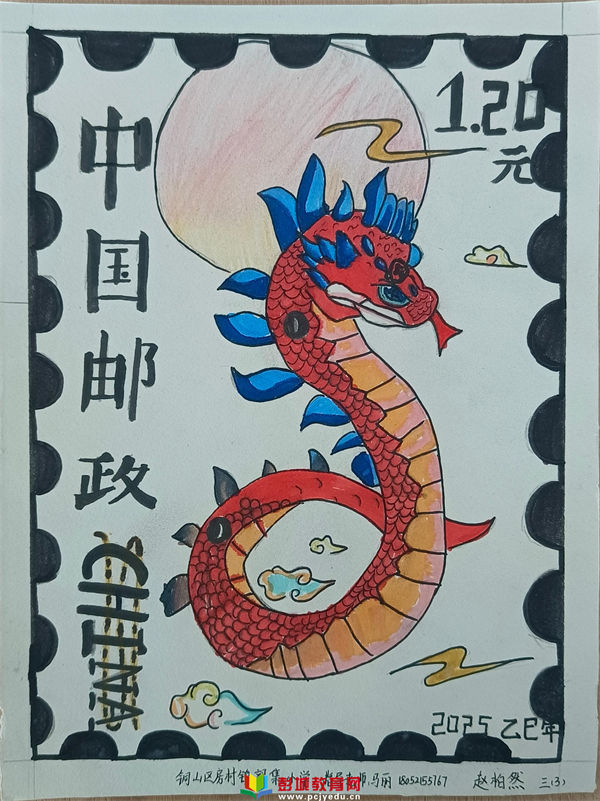 中国邮政
CHINA
1.20
元
2025 乙巳年
铜山区房村镇 集小学 马丽 18052155767 赵柏然 三(3)
彭城教育网
www.pcjyedu.cn